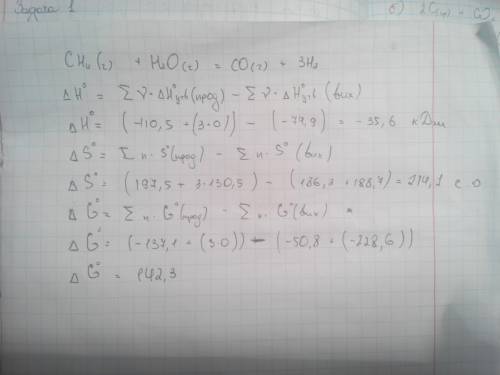 Задача 1
б) 2C(гр) +
CH₄(г) + H₂O(г) = CO(г) + 3H₂
ΔH° = Σν·ΔH°утв(прод) − Σν·ΔH°утв(вих)
ΔH° = (−110,5 + (3·0)) − (−74,9) = −35,6 кДж
ΔS° = Σn·S°(прод) − Σn·S°(вих)
ΔS° = (197,5 + 3·130,5) − (186,3 + 188,7) = 214,1 е.о
ΔG° = Σn·G°(прод) − Σn·G°(вих)
ΔG° = (−137,1 + (3·0)) − (−50,8 + (−228,6))
ΔG° = 142,3